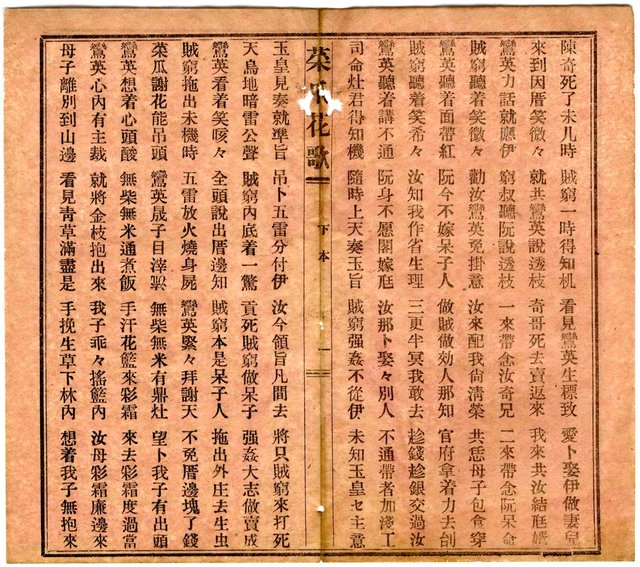 陳奇死了未几時　賊窮一時得知机　看見鸞英生標致　愛卜娶伊做妻兒
來到因厝笑微々　就共鸞英說透枝　奇哥死去賣返來　我來共汝結尪婿
鸞英力話就應伊　窮叔聽阮說透枝　一來帶念汝奇兄　二來帶念阮呆命
賊窮聽着笑微々　勸汝鸞英免掛意　汝來配我尚清榮　共恁母子包食穿
鸞英聽着面帶紅　阮今不嫁呆子人　做賊做劾人那知　官府拿着力去刣
賊窮聽着笑希々　汝知我作省生理　三更半冥我敢去　趁錢趁銀交過汝
鸞英聽着講不通　阮身不愿閣嫁尪　汝那卜娶々別人　不通帶者加淺工
司命灶君得知機　隨時上天奏玉旨　賊窮强姦不從伊　未知玉皇セ主意
菜瓜花歌　下本　一
玉皇見奏就準旨　吊卜五雷分付伊　汝今領旨凡間去　將只賊窮來打死
天烏地暗雷公聲　賊窮內底着一驚　貢死賊窮做呆子　强姦大志做賣成
鸞英看着笑咳々　全頭說出厝邊知　賊窮本是呆子人　拖出外庄去生虫
賊窮拖出未機時　五雷放火燒身屍　鸞英緊々拜謝天　不免厝邊塊了錢
菜瓜謝花能吊頭　鸞英晟子目滓　無柴無米有鼎灶　望卜我子有出頭
鸞英想着心頭酸　無柴無米通煮飯　手汗花籃來彩霜　來去彩霜度過當
鸞英心內有主裁　就將金枝抱出來　我子乖々搖籃內　汝母彩霜廉邊來
母子離別到山邊　看見青草滿盡是　手挽生草下林內　想着我子無抱來